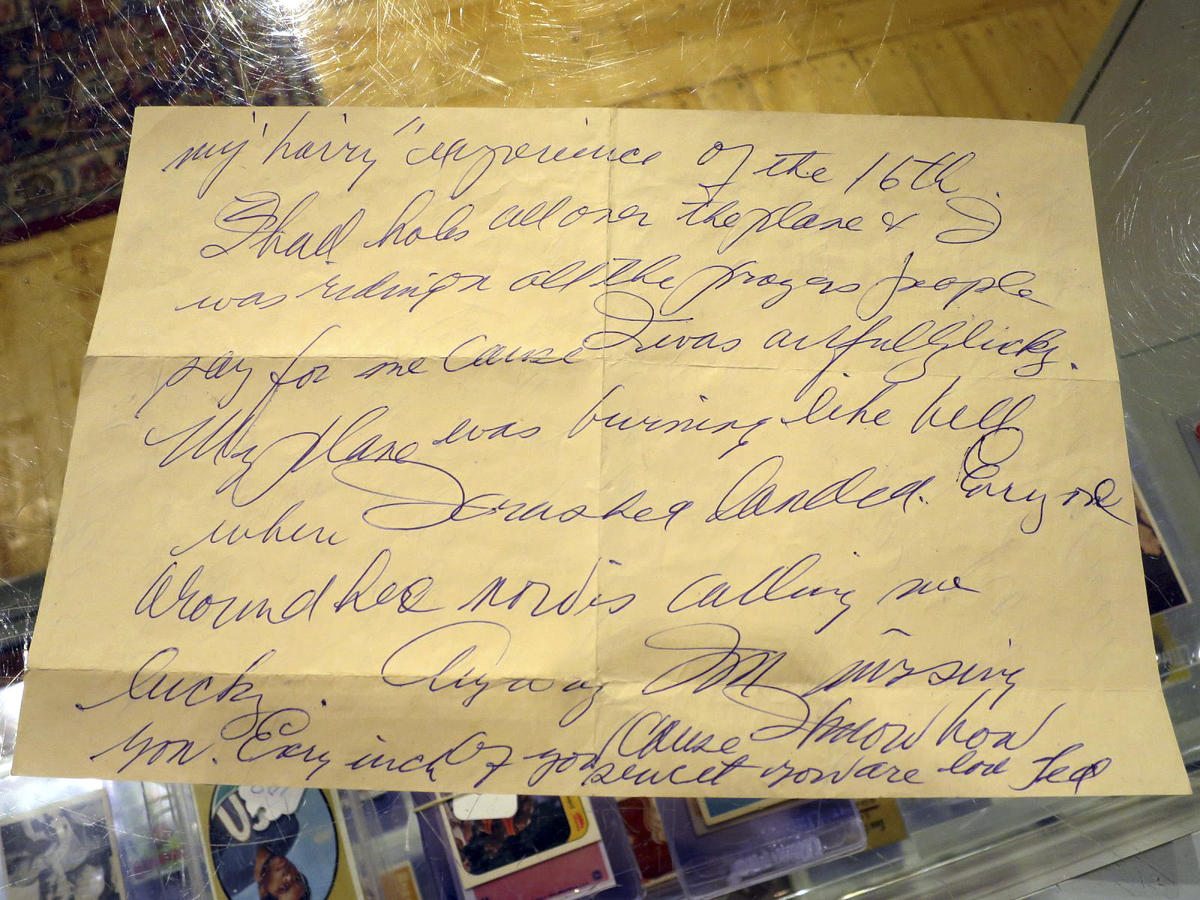 my "hairy" experience of the 16th.
I had holes all over the plane & I
was riding on all the prayers people
say for me cause I was awfully lucky.
My plane was burning like hell
when I crashed landed. Every one
around here now is calling me
lucky. Anyway I'm missing
you. Every inch of you cause I know how
sweet you are love Ted
USA